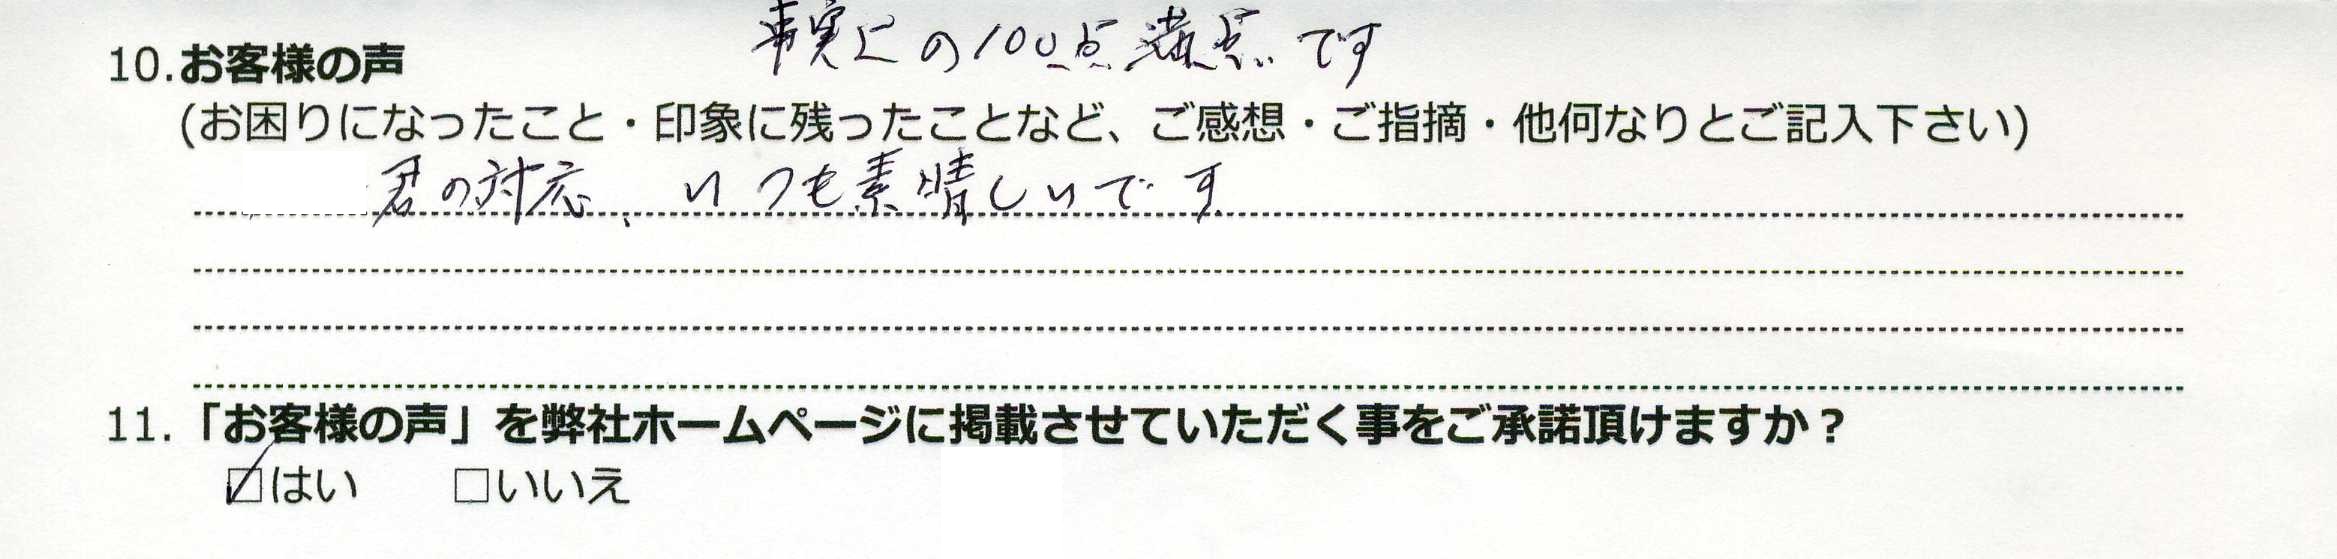 事実上の100点満点です
10.お客様の声
(お困りになったこと・印象に残ったことなど、ご感想・ご指摘・他何なりとご記入下さい)
君の対応、いつも素晴しいです
11.「お客様の声」を弊社ホームページに掲載させていただく事をご承諾頂けますか？
☑はい □いいえ